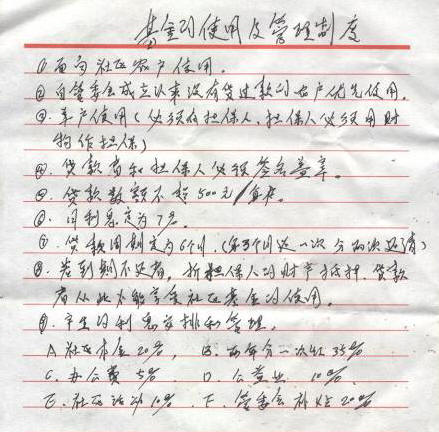 基金的使用及管理制度
① 面向社区农户使用.
② 自管委会成立以来没有贷过款的农户优先使用.
③ 单户使用(必须有担保人,担保人必须用财
物作担保)
④. 贷款者和担保人必须签名盖章.
⑤. 贷款数额不超500元/户.
⑥. 月利息定为7‰.
⑦. 贷款周期定为6个月.(第3个月还一次 分两次还清)
⑧. 若到期不还者, 折担保人的财产抵押. 贷款
者从此不能享受社区基金的使用.
⑨. 产生的利息安排和管理.
A 社区本金20%, B. 两年分一次红35%
C. 办公费5% D. 公益业10%
E. 社区活动10% F. 管委会补贴20%